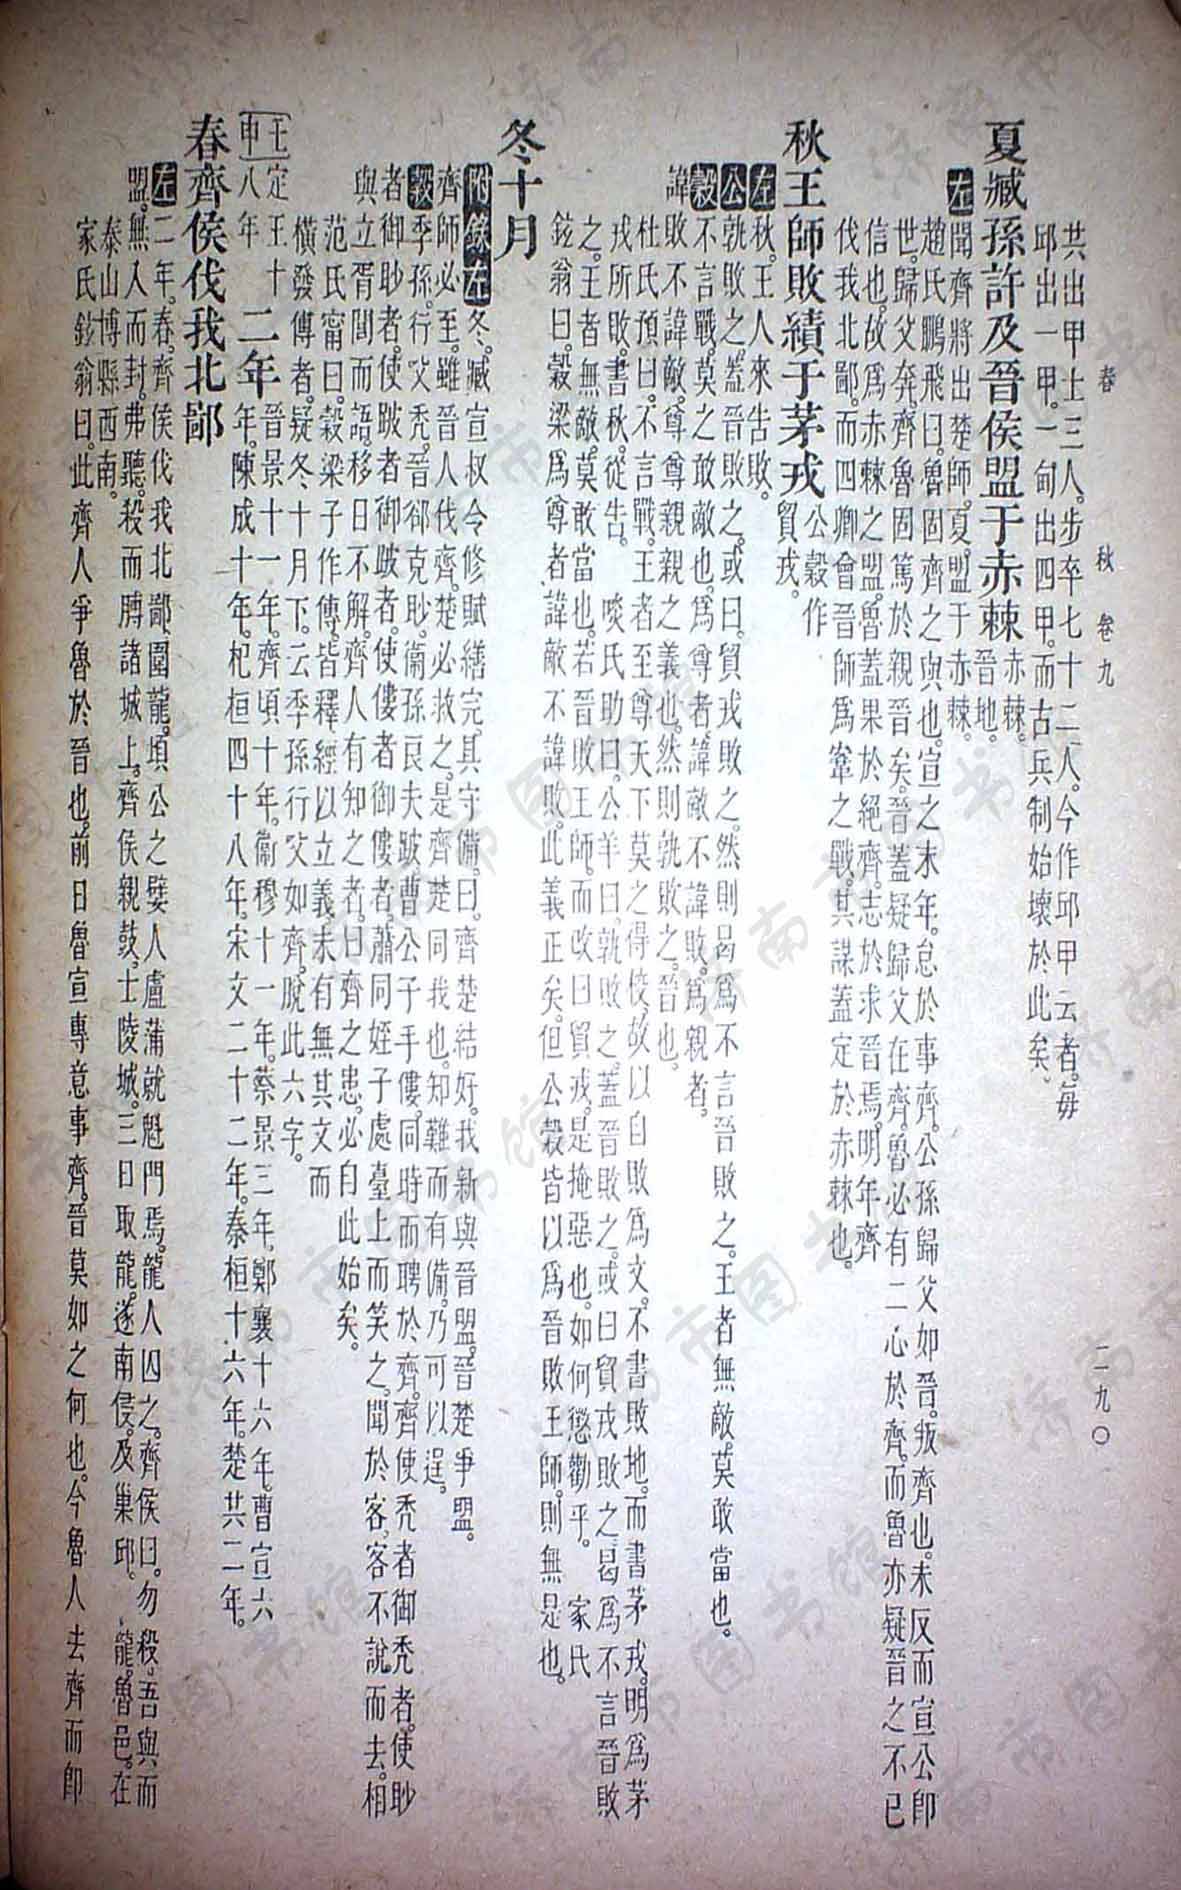 春　秋　卷九　二九〇
共出甲士三人。步卒七十二人。今作邱甲云者。每
邱出一甲。一甸出四甲。而古兵制始壞於此矣。
夏臧孫許及晉侯盟于赤棘赤棘。晉地。
左聞齊將出楚師。夏。盟于赤棘。
趙氏鵬飛曰。魯固齊之與也。宣之末年。怠於事齊。公孫歸父如晉。叛齊也。未反而宣公卽
世。歸父奔齊。魯固篤於親晉矣。晉蓋疑歸父在齊。魯必有二心於齊。而魯亦疑晉之不已
信也。故爲赤棘之盟。魯蓋果於絕齊。志於求晉焉。明年齊
伐我北鄙。而四卿會晉師爲鞌之戰。其謀蓋定於赤棘也。
秋王師敗績于茅戎公穀作貿戎。
左秋。王人來告敗。
公孰敗之。蓋晉敗之。或曰。貿戎敗之。然則曷爲不言晉敗之。王者無敵。莫敢當也。
穀不言戰。莫之敢敵也。爲尊者。諱敵不諱敗。爲親者。
諱敗不諱敵。尊尊親親之義也。然則孰敗之。晉也。
杜氏預曰。不言戰。王者至尊。天下莫之得校。故以自敗爲文。不書敗地。而書茅戎。明爲茅
戎所敗。書秋。從告。　啖氏助曰。公羊曰。孰敗之。蓋晉敗之。或曰貿戎敗之。曷爲不言晉敗
之。王者無敵。莫敢當也。若晉敗王師。而改曰貿戎。是掩惡也。如何懲勸乎。　家氏
鉉翁曰。穀梁爲尊者諱敵不諱敗。此義正矣。但公穀皆以爲晉敗王師。則無是也。
冬十月
附錄左冬。臧宣叔令修賦繕完。具守備。曰。齊楚結好。我新與晉盟。晉楚爭盟。
齊師必至。雖晉人伐齊。楚必救之。是齊楚同我也。知難而有備。乃可以逞。
穀季孫行父禿。晉郤克眇。衞孫良夫跛。曹公子手僂。同時而聘於齊。齊使禿者御禿者。使眇
者御眇者。使跛者御跛者。使僂者御僂者。蕭同姪子處臺上而笑之。聞於客。客不說而去。相
與立胥閭而語。移日不解。齊人有知之者。曰齊之患。必自此始矣。
范氏甯曰。穀梁子作傳。皆釋經以立義。未有無其文而
橫發傳者。疑冬十月下。云季孫行父如齊。脫此六字。
壬申定王十八年二年晉景十一年。齊頃十年。衞穆十一年。蔡景三年。鄭襄十六年。曹宣六
年。陳成十年。杞桓四十八年。宋文二十二年。秦桓十六年。楚共二年。
春齊侯伐我北鄙
左二年。春。齊侯伐我北鄙。圍龍。頃公之嬖人盧蒲就魁門焉。龍人囚之。齊侯曰。勿殺。吾與而
盟。無入而封。弗聽。殺而膊諸城上。齊侯親鼓。士陵城。三日取龍。遂南侵。及巢邱。龍。魯邑。在
泰山博縣西南。
家氏鉉翁曰。此齊人爭魯於晉也。前日魯宣專意事齊。晉莫如之何也。今魯人去齊而卽